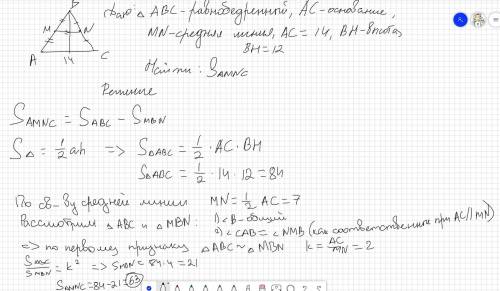 B
M
N
A
14
C
Дано: △ ABC - равнобедренный, AC - основание,
MN - средняя линия, AC = 14, BH - высота
BH = 12
Найти: S_AMNC
Решение
S_AMNC = S_ABC - S_MBN
S_△ = 1/2 ah => S_△ABC = 1/2 · AC · BH
S_△ABC = 1/2 · 14 · 12 = 84
По св-ву средней линии MN = 1/2 AC = 7
Рассмотрим △ ABC и △ MBN: 1) ∠B - общий
2) ∠CAB = ∠NMB (как соответственные при AC || MN)
=> по первому признаку △ ABC ~ △ MBN k = AC/MN = 2
S_ABC/S_MBN = k² => S_MBN = 84:4 = 21
S_AMNC = 84 - 21 = 63